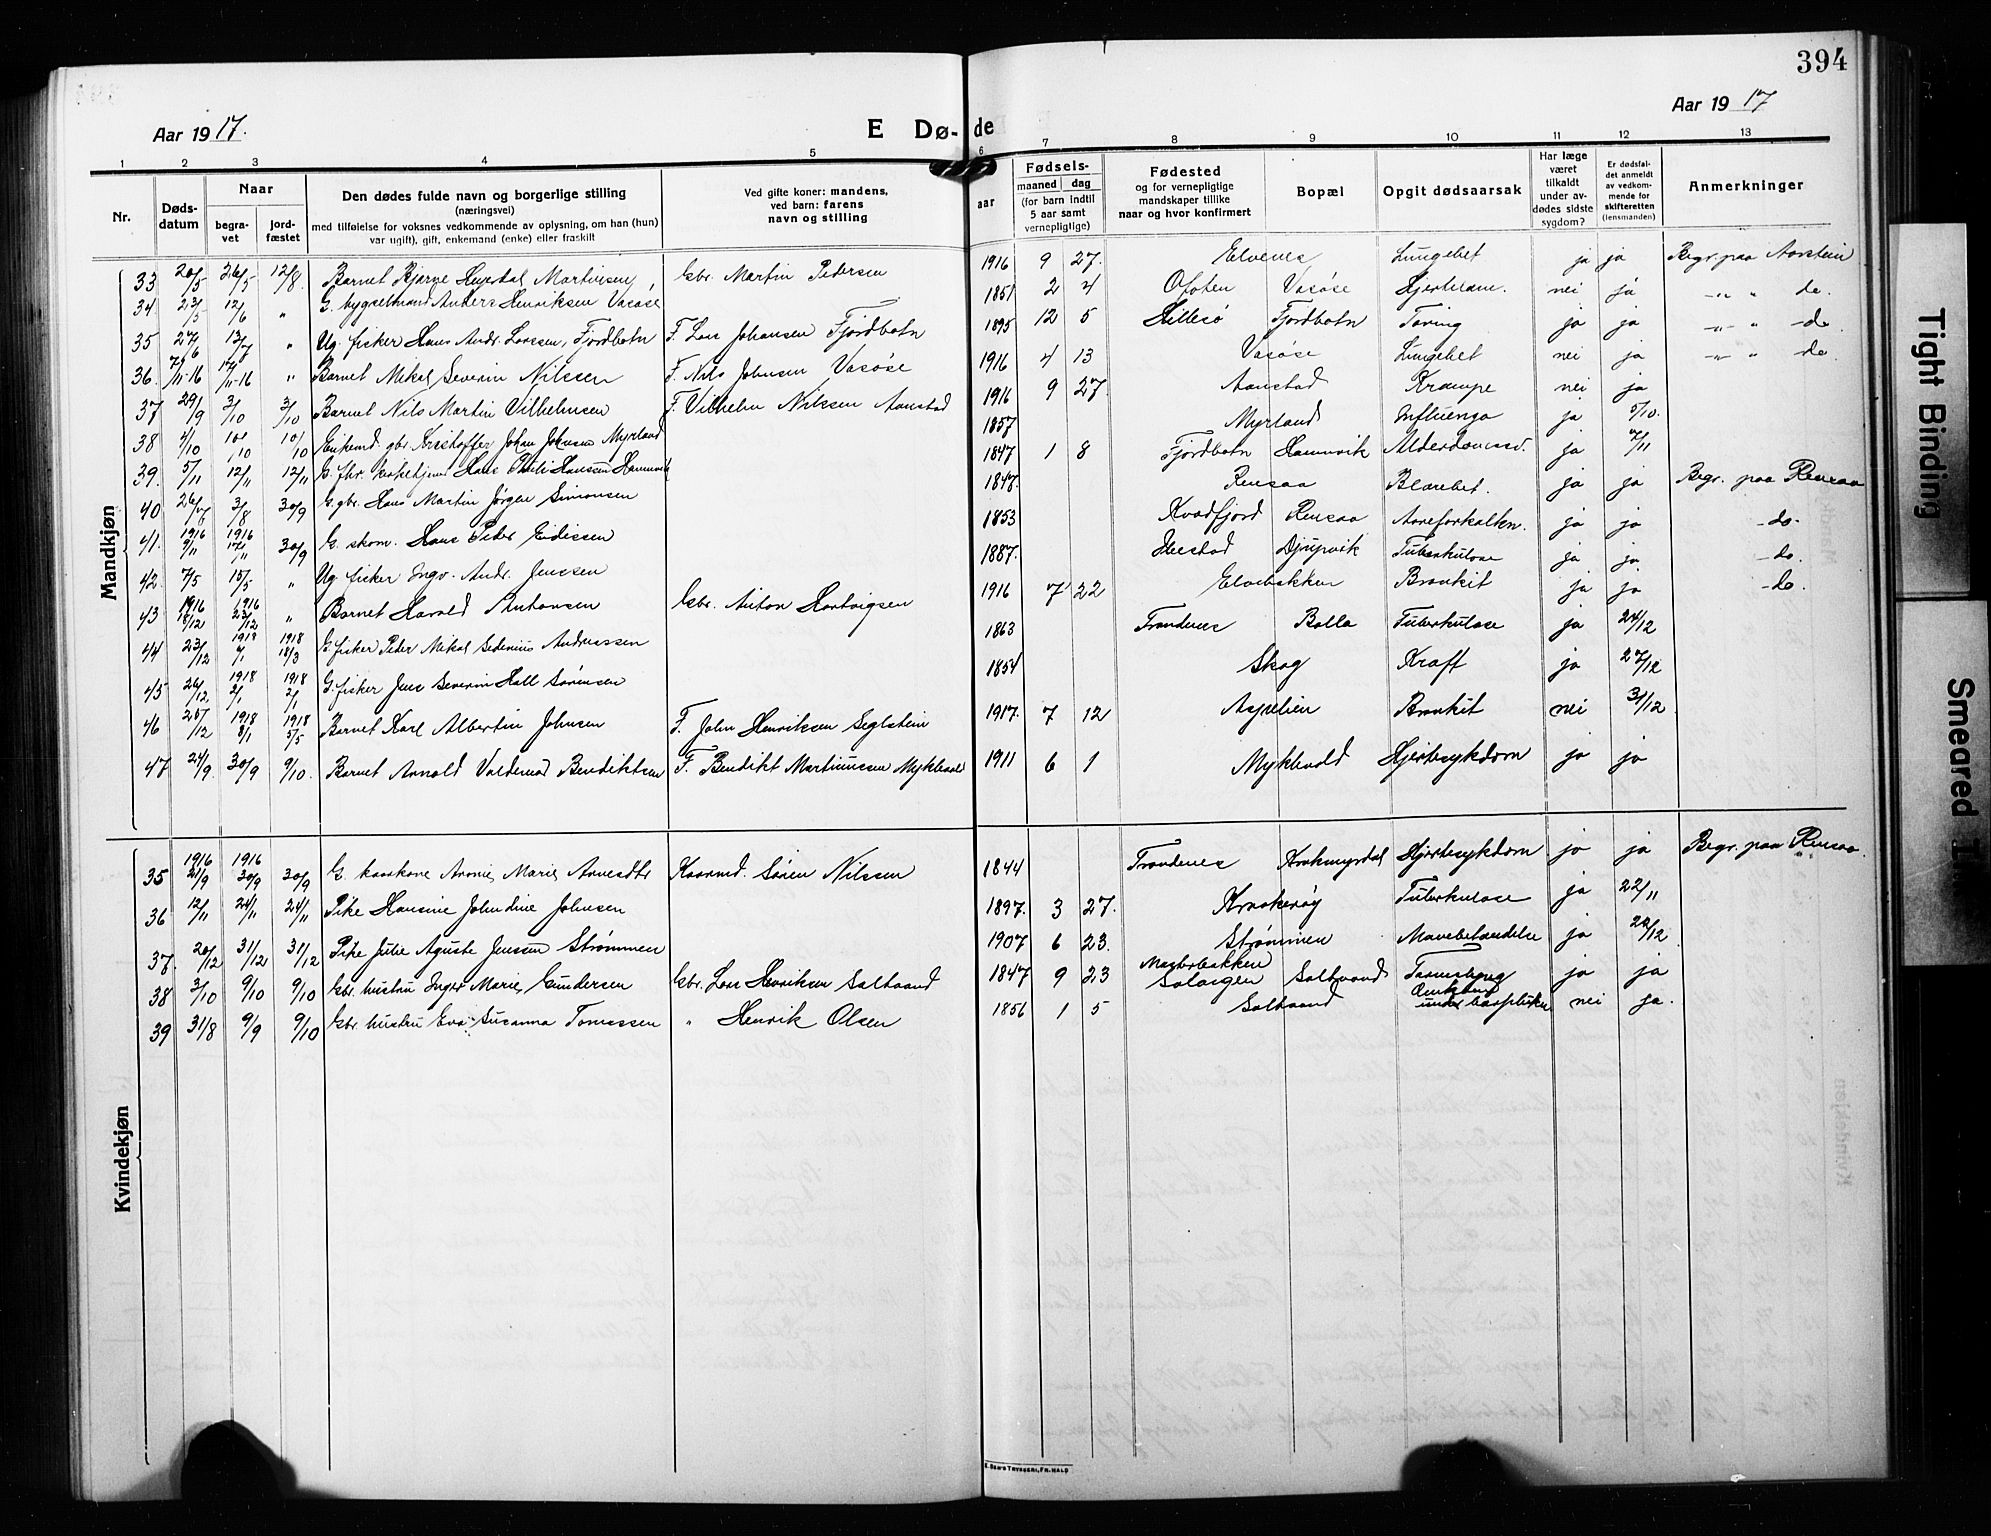 394
Aar 1917.
E Dø- de
Aar 1917
1 2 3 4 5 6 7 8 9 10 11 12 13
Nr.
Døds-datum
Naar
begra-vet
jord-fæstet
Den dødes fulde navn og borgerlige stilling
(næringsvei)
med tilføielse for voksnes vedkommende av oplysning, om han (hun)
var ugift), gift, enkemand (enke) eller fraskilt
Ved gifte koner: mandens,
ved barn: farens
navn og stilling
Fødsels-
aar
maaned
dag
(for barn indtil
5 aar samt
vernepligtige)
Fødested
og for vernepligtige
mandskaper tillike
naar og hvor konfirmert
Bopæl
Opgit dødsaarsak
Har læge
været
tilkaldt
under av-
dødes sidste
sygdom?
Er dødsfal-
det anmeldt
av vedkom-
mende for
skifteretten
(lensmanden)
Anmerkninger
Mandkjøn
33 20/5 26/5 12/8 Barnet Bjarne Martinsen Gbr. Martin Pedersen 1916 9 27 Elvenes Lungebet ja ja Begr. paa Aarstein
34. 23/5 12/6 " G. bygselmand Anders Henriksen Vasøse 1851 2 4 Ofoten Vasøse nei ja -"- " do.
35 27/6 13/7 " Ug. fisker Hans Andr. Larssen, Fjordbotn F. Lars Johansen Fjordbotn 1895 12 5 Hillesø Fjordbotn Tæring ja ja -"- " do
36. 7/11-16 17/11-16 " Barnet Mikal Severin Nilssen F. Nils Johnsen Vasøse 1916 4 13 Vasøse Lungebet nei ja -"- " do.
37 29/9 3/10 3/10 Barnet Nils Martin Vilhelmsen F. Vilhelm Nilssen Aanstad 1916 9 27. Aanstad Krampe nei ja
38 4/10 10/10 10/10 Enkemd. gbr. Kristoffer Johan Johnsen Myrland 1857 Myrland Influenza ja 5/10.
39. 5/11 12/11 12/11 G. Hans Hanssen Hamnvik 1847 1 8 Fjordbotn Hamnvik ja 7/11
40 26/7 3/8 30/9 G. gbr. Hans Martin Jørgen Simonsen 1847. Rensaa Blærebet. ja ja Begr. paa Rensaa
41. 1916 9/11 1916 17/11 30/9 G. skom. Hans Peder Eidissen 1853 Kvadfjord Rensaa Aareforkalkn. ja ja -do-
42 7/5 15/5 " Ug. fisker Ingv. Andr. Jenssen 1887. Ibestad Djupvik Tuberkulose ja ja. -do
43 1916 18/12 1916 23/12 " Barnet Harald Antonsen Gbr. Anton Hartvigsen 1916 7 22 Elvebakken Bronkit ja ja -do.
44 23/12 1918 7/1 1918 18/3 G. fisker Peder Mikal Sedenius Andreassen 1863 Trondenes Bolla Tuberkulose ja 24/12
45 26/12 1918 2/1 1918 2/1 G. fisker Jens Severin Hall Sørensen 1854 Skog Kræft ja 27/12
46 25/12 1918 8/1 1918 5/5 Barnet Karl Albertin Johnsen F. John Henriksen Seglstein 1917. 7 12 Aspelien Bronkit nei 31/12
47 24/9. 30/9 9/10. Barnet Arnold Valdemar Bendiktsen F. Bendikt Martinussen Myklevold 1911 6 1 Myklevold Hjertesykdom ja ja
Kvindekjøn
35 1916 21/9 1916 30/9 30/9 G. kaarkone Marie Kaarmd. Søren Nilssen 1844 Trondenes Hjertesykdom ja ja Begr. paa Rensaa
36 12/11 24/11 24/11 Pike Hansine Johndine Johnsen 1897. 3 27. Krokerøy Tuberkulose ja 22/11
37. 20/12 31/12 31/12 Pike Julie Aguste Jensen Strømmen 1907 6 23. Strømmen Mavebetændelse ja 22/12
38 3/10 9/10 9/10 Gbr. hustru Inger Marie Gundersen Gbr. Lars Henriksen Saltvand 1847 9 23 Salangen Saltvand ja ja
39 31/8 9/9 9/10 Gbr. hustru Eva Susanna Tomassen " Henrik Olsen 1856 1 5 Saltvand under nei ja.
E. SEM'S TRYKKERI, FR.HALD
Tight Binding
Smeared